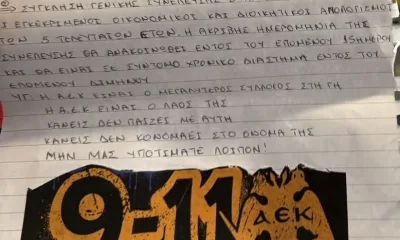 ② ΣΥΓΚΛΗΣΗ ΓΕΝΙΚΗΣ ΣΥΝΕΛΕΥΣΗΣ
ΕΓΚΕΚΡΙΜΕΝΟΣ ΟΙΚΟΝΟΜΙΚΟΣ ΚΑΙ ΔΙΟΙΚΗΤΙΚΟΣ ΑΠΟΛΟΓΙΣΜΟΣ
ΤΩΝ 5 ΤΕΛΕΥΤΑΙΩΝ ΕΤΩΝ. Η ΑΚΡΙΒΗΣ ΗΜΕΡΟΜΗΝΙΑ ΤΗΣ
ΣΥΝΕΛΕΥΣΗΣ ΘΑ ΑΝΑΚΟΙΝΩΘΕΙ ΕΝΤΟΣ ΤΟΥ ΕΠΟΜΕΝΟΥ 15ΗΜΕΡΟΥ
ΚΑΙ ΘΑ ΕΙΝΑΙ ΣΕ ΣΥΝΤΟΜΟ ΧΡΟΝΙΚΟ ΔΙΑΣΤΗΜΑ ΕΝΤΟΣ ΤΟΥ
ΕΠΟΜΕΝΟΥ ΔΙΜΗΝΟΥ.
ΥΓ: Η Α.Ε.Κ ΕΙΝΑΙ Ο ΜΕΓΑΛΥΤΕΡΟΣ ΣΥΛΛΟΓΟΣ ΣΤΗ ΓΗ
Η Α.Ε.Κ ΕΙΝΑΙ Ο ΛΑΟΣ ΤΗΣ
ΚΑΝΕΙΣ ΔΕΝ ΠΑΙΖΕΙ ΜΕ ΑΥΤΗ
ΚΑΝΕΙΣ ΔΕΝ ΚΟΝΟΜΑΕΙ ΣΤΟ ΟΝΟΜΑ ΤΗΣ
ΜΗΝ ΜΑΣ ΥΠΟΤΙΜΑΤΕ ΛΟΙΠΟΝ!
9-11
ΑΕΚ